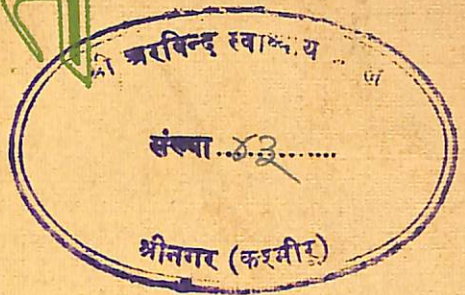 श्री अरविन्द स्वाध्याय
संख्या ..४३.......
श्रीनगर (कश्मीर)